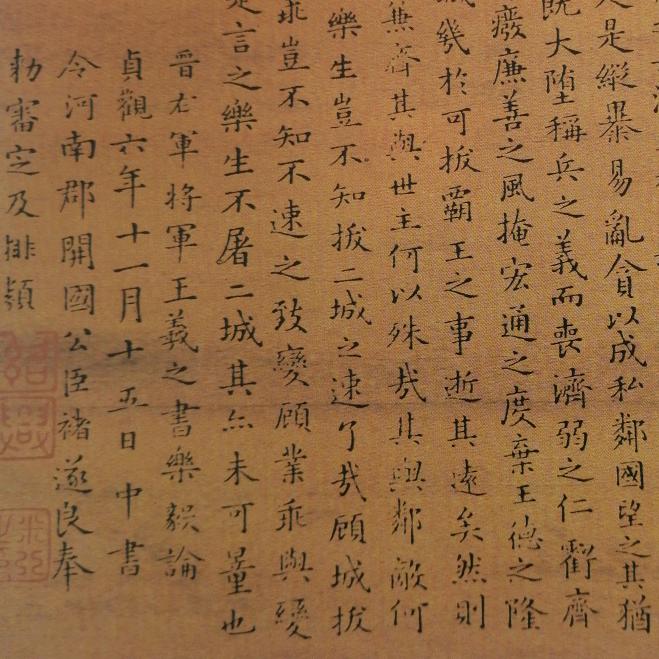 是縱暴易亂貪以成私鄰國望之其猶
既大堕稱兵之義而喪濟弱之仁虧齊
廢廉善之風掩宏通之度棄王德之隆
城幾於可拔霸王之事逝其遠矣然則
兼齊其與世主何以殊哉其與鄰敵何
樂生豈不知拔二城之速了哉顧城拔
乖豈不知不速之致變顧業乖與變
是言之樂生不屠二城其亦未可量也
晉右軍將軍王羲之書樂毅論
貞觀六年十一月十五日中書
令河南郡開國公臣褚遂良奉
勅審定及排類